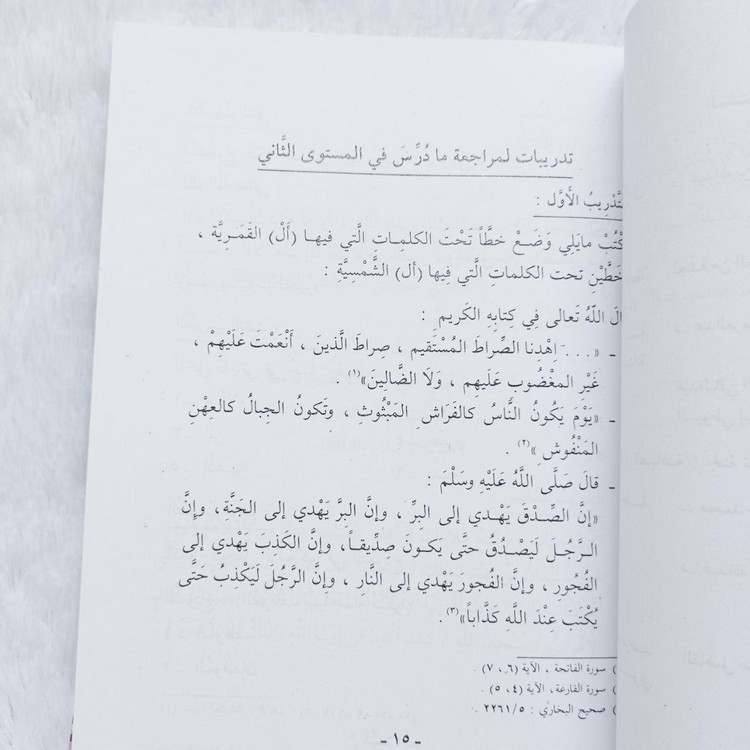 تدريبات لمراجعة ما دُرِّسَ في المستوى الثَّاني
تَّدْرِيبُ الأَوَّل :
كْتُبْ مايَلِي وَضَعْ خطَّاً تَحْتَ الكلمـاتِ الَّتي فيهـا (أَلْ) القَمَرِيَّة ،
خَطَّيْنِ تحت الكلماتِ الَّتي فِيها (أل) الشَّمْسِيَّةِ :
الَ اللَّهُ تَعالى فِي كِتابِهِ الكَريمِ :
ـ « . . . اِهْدِنا الصِّراطَ المُسْتَقيم ، صِراطَ الَّذينَ ، أَنْعَمْتَ عَلَيْهِمْ ،
غَيْرِ المغْضُوبِ عَلَيهم ، وَلَا الضَّالينَ»(١) .
ـ «يَوْمَ يَكُونُ النَّاسُ كالفَراشِ المَبْثُوثِ ، وتَكونُ الجِبالُ كالعِهْنِ
المَنْفُوشِ»(٢) .
ـ قالَ صَلَّى اللَّهُ عَلَيْهِ وسَلَّمَ :
«إنَّ الصِّـدْقَ يَهْـدي إلى البِرِّ ، وإنَّ البِرَّ يَهْدي إلى الجَنَّةِ، وإنَّ
الـرَّجُـلَ لَيَصْـدُقُ حتَّى يَكـونَ صِدِّيقـاً، وإنَّ الكَذِبَ يَهْدي إلى
الفُجُورِ ، وإنَّ الفُجورَ يَهْدي إلى النَّارِ ، وإنَّ الرَّجُلَ لَيَكْذِبُ حَتَّى
يُكْتَبَ عِنْدَ اللَّهِ كَذَّاباً»(٣) .
) سورة الفاتحة ، الآية (٦ ، ٧) .
) سورة القارعة، الآية (٤ ، ٥) .
) صحيح البخاري : ٢٢٦١/٥ .
- ١٥ -